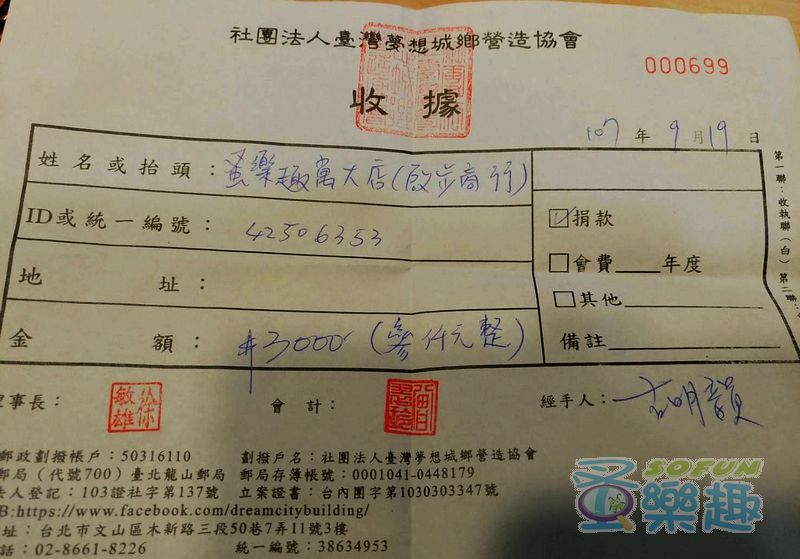 社團法人臺灣夢想城鄉營造協會
000699
收據
107年9月19日
姓名或抬頭：蛋樂趣萬大店(啟步商行)
ID或統一編號：42506353
地址：
金額：#3000(參仟元整)
☑捐款
□會費____年度
□其他
備註
第一聯：收執聯（白）第二聯：
理事長：
徐敏雄
會計：
經手人：
郵政劃撥帳戶：50316110
劃撥戶名：社團法人臺灣夢想城鄉營造協會
郵局（代號700）臺北龍山郵局 郵局存簿帳號：0001041-0448179
法人登記：103證社字第137號 立案證書：台內團字第1030303347號
B:https://www.facebook.com/dreamcitybuilding/
址：台北市文山區木新路三段50巷7弄11號3樓
話：02-8661-8226 統一編號：38634953
SOFUN
蛋樂趣